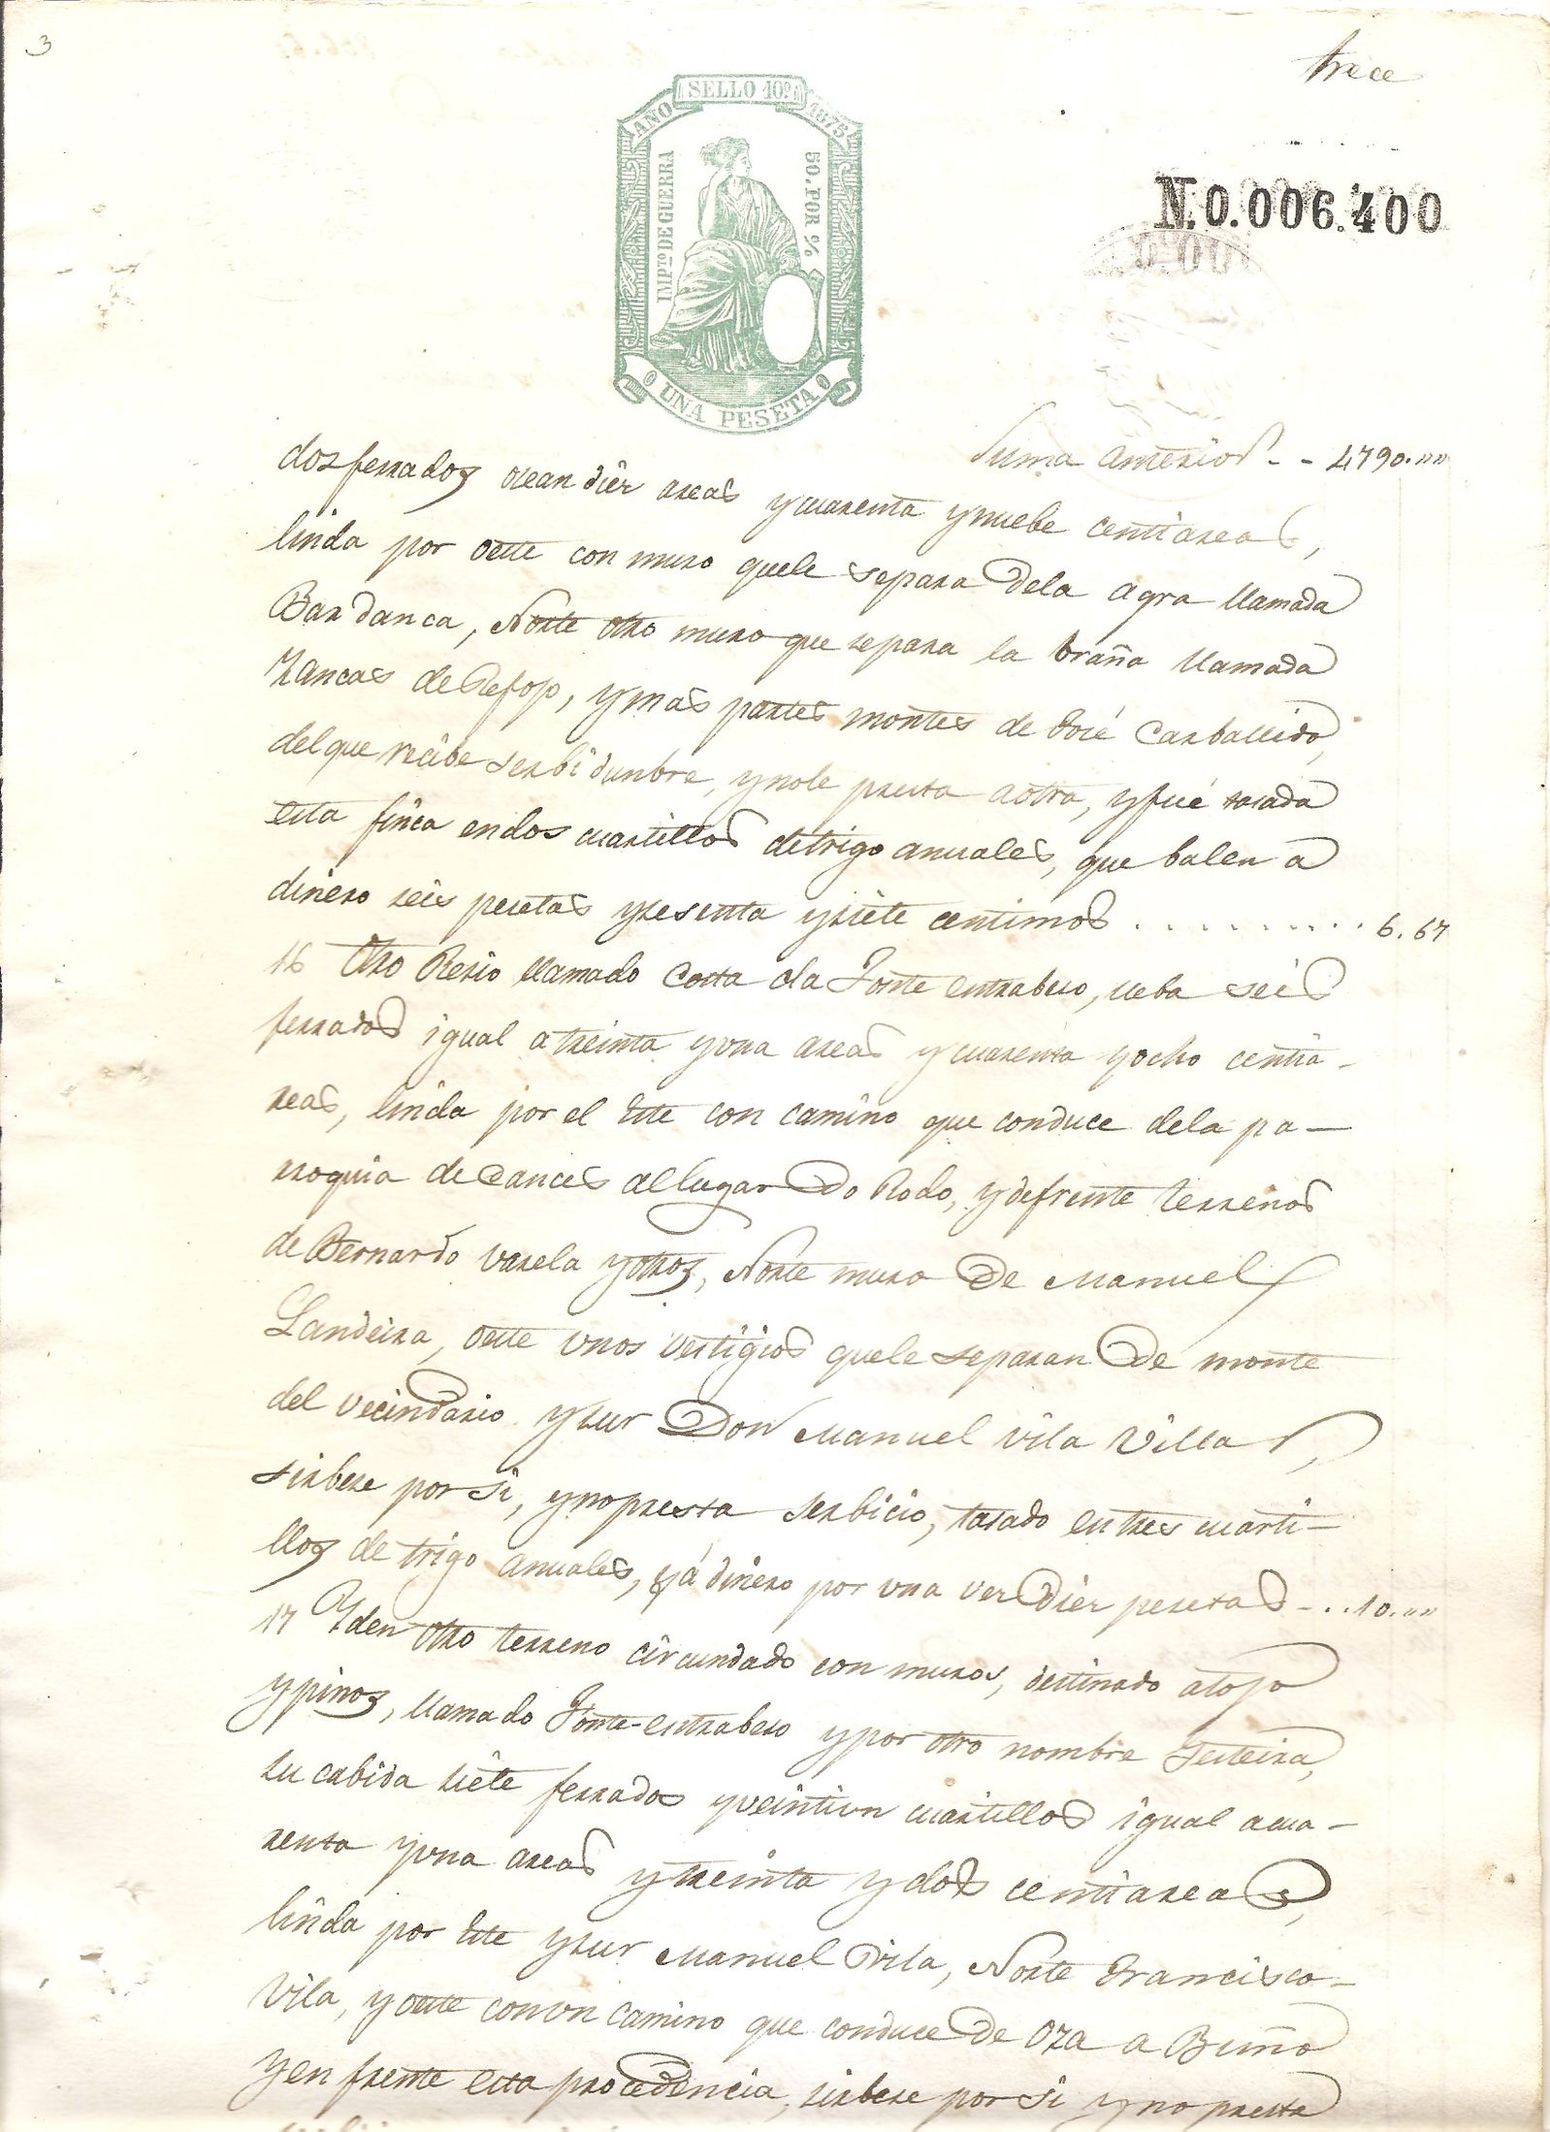 3
trece
SELLO 10º
AÑO 1875
IMPTO DE GUERRA
50. POR %
UNA PESETA
N.0.006.400
Suma anterior - - 4790.""
dos ferrados ocean diez areas y cuarenta y nuebe centiareas,
linda por oeste con muro quele separa dela agra llamada
Bardanca, Norte otro muro que separa la braña llamada
Zancas de Refojo, y mas partes montes de José Carballido,
del que recibe serbidunbre, y nole presta a otra, y fué tasada
esta finca en dos cuartillos de trigo anuales, que balen a
dinero seis pesetas y sesenta y siete centimos . . . . . . . . . . 6.67
16 Otro Resio llamado Costa da Fonte entrabeso, lleba seis
ferrados igual a treinta y una areas y cuarenta y ocho centia-
reas, linda por el Este con camino que conduce dela pa-
rroquia de Cances al lugar do Rodo, y defrente terrenos
de Bernardo Varela y otros, Norte muro de Manuel
Landeira, oeste unos vestigios quele separan de monte
del vecindario y sur Don Manuel Vila Villar,
sirbese por si, y no presta serbicio, tasado en tres cuarti-
llos de trigo anuales, y á dinero por una vez diez pesetas - . . 10.""
17 Yden otro terreno circundado con muros, destinado a tojo
y pinos, llamado Fonte-entrabeso y por otro nombre Testeira,
su cabida siete ferrados y veintiun cuartillos igual a cua-
renta y una areas y treinta y dos centiareas,
linda por Este y sur Manuel Vila, Norte Francisco
Vila, y oeste con un camino que conduce de Oza a Buño
y en frente esta procedencia, sirbese por si y no presta